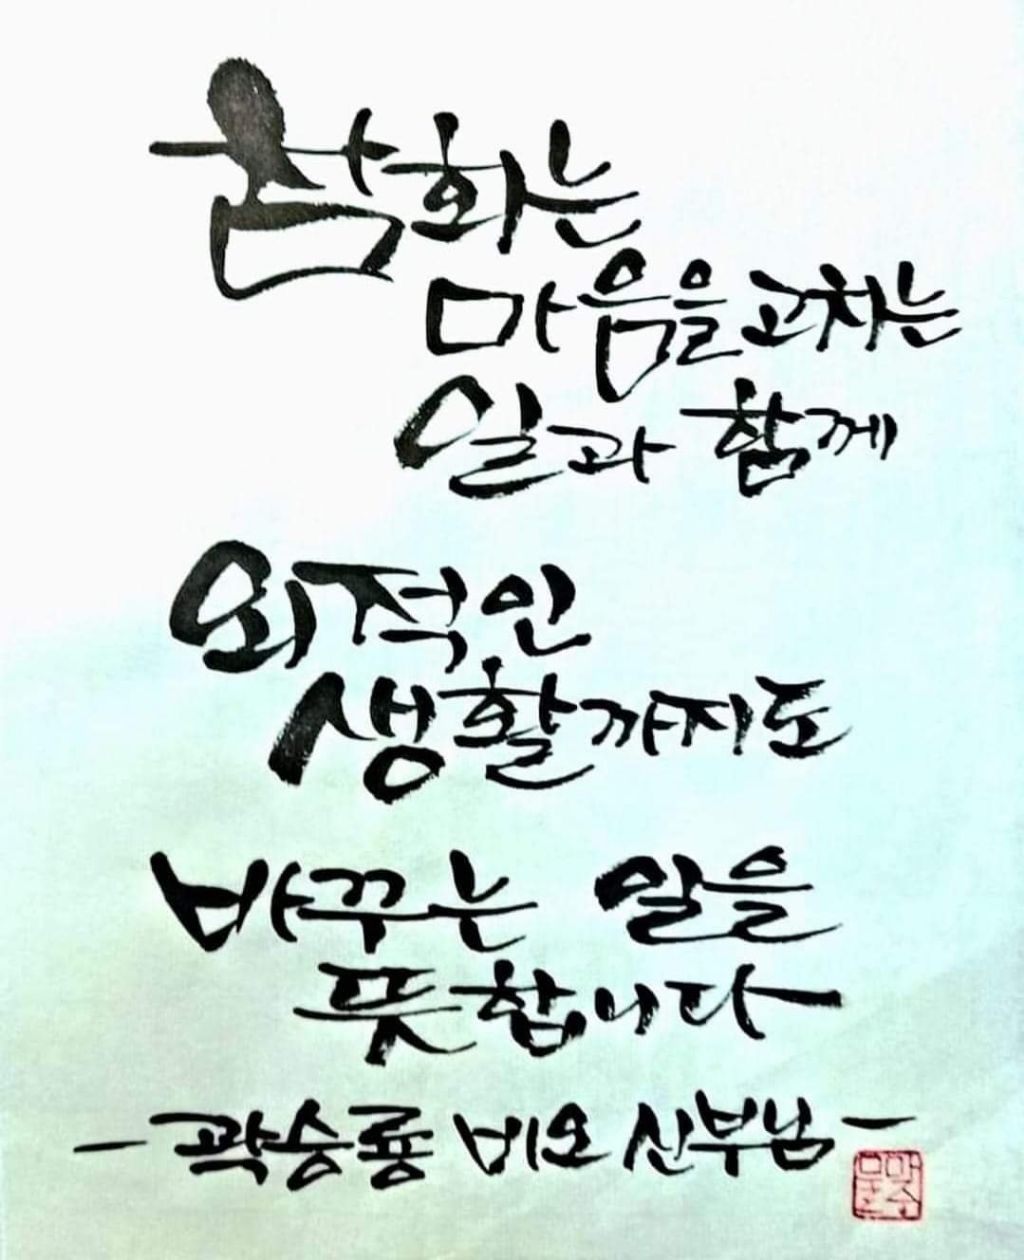 참회는
마음을 고치는
일과 함께
외적인
생활까지도
바꾸는 일을
뜻합니다
- 곽승룡 비오 신부님 -